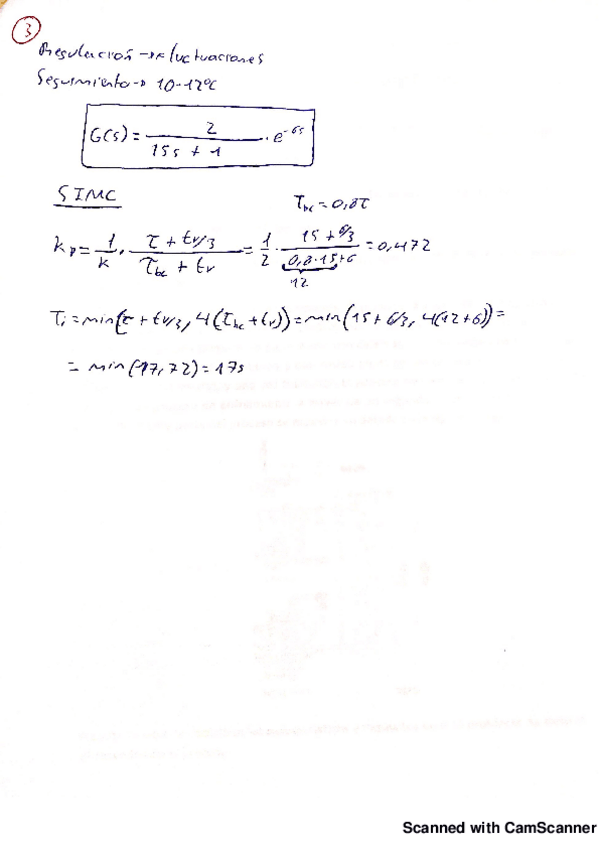 3
Regulación → fluctuaciones
Seguimiento → 10-12ºC
G(s) = 2 / (15s + 1) · e^-6s
SIMC
T_bc = 0,8τ
k_p = 1/k · (τ + tr/3) / (τ_bc + tr) = 1/2 · (15 + 6/3) / (0,8·15+6) = 0,472
12
T_i = min(τ + tr/3, 4(τ_bc + tr)) = min(15 + 6/3, 4(12+6)) =
= min(17, 72) = 17s
Scanned with CamScanner